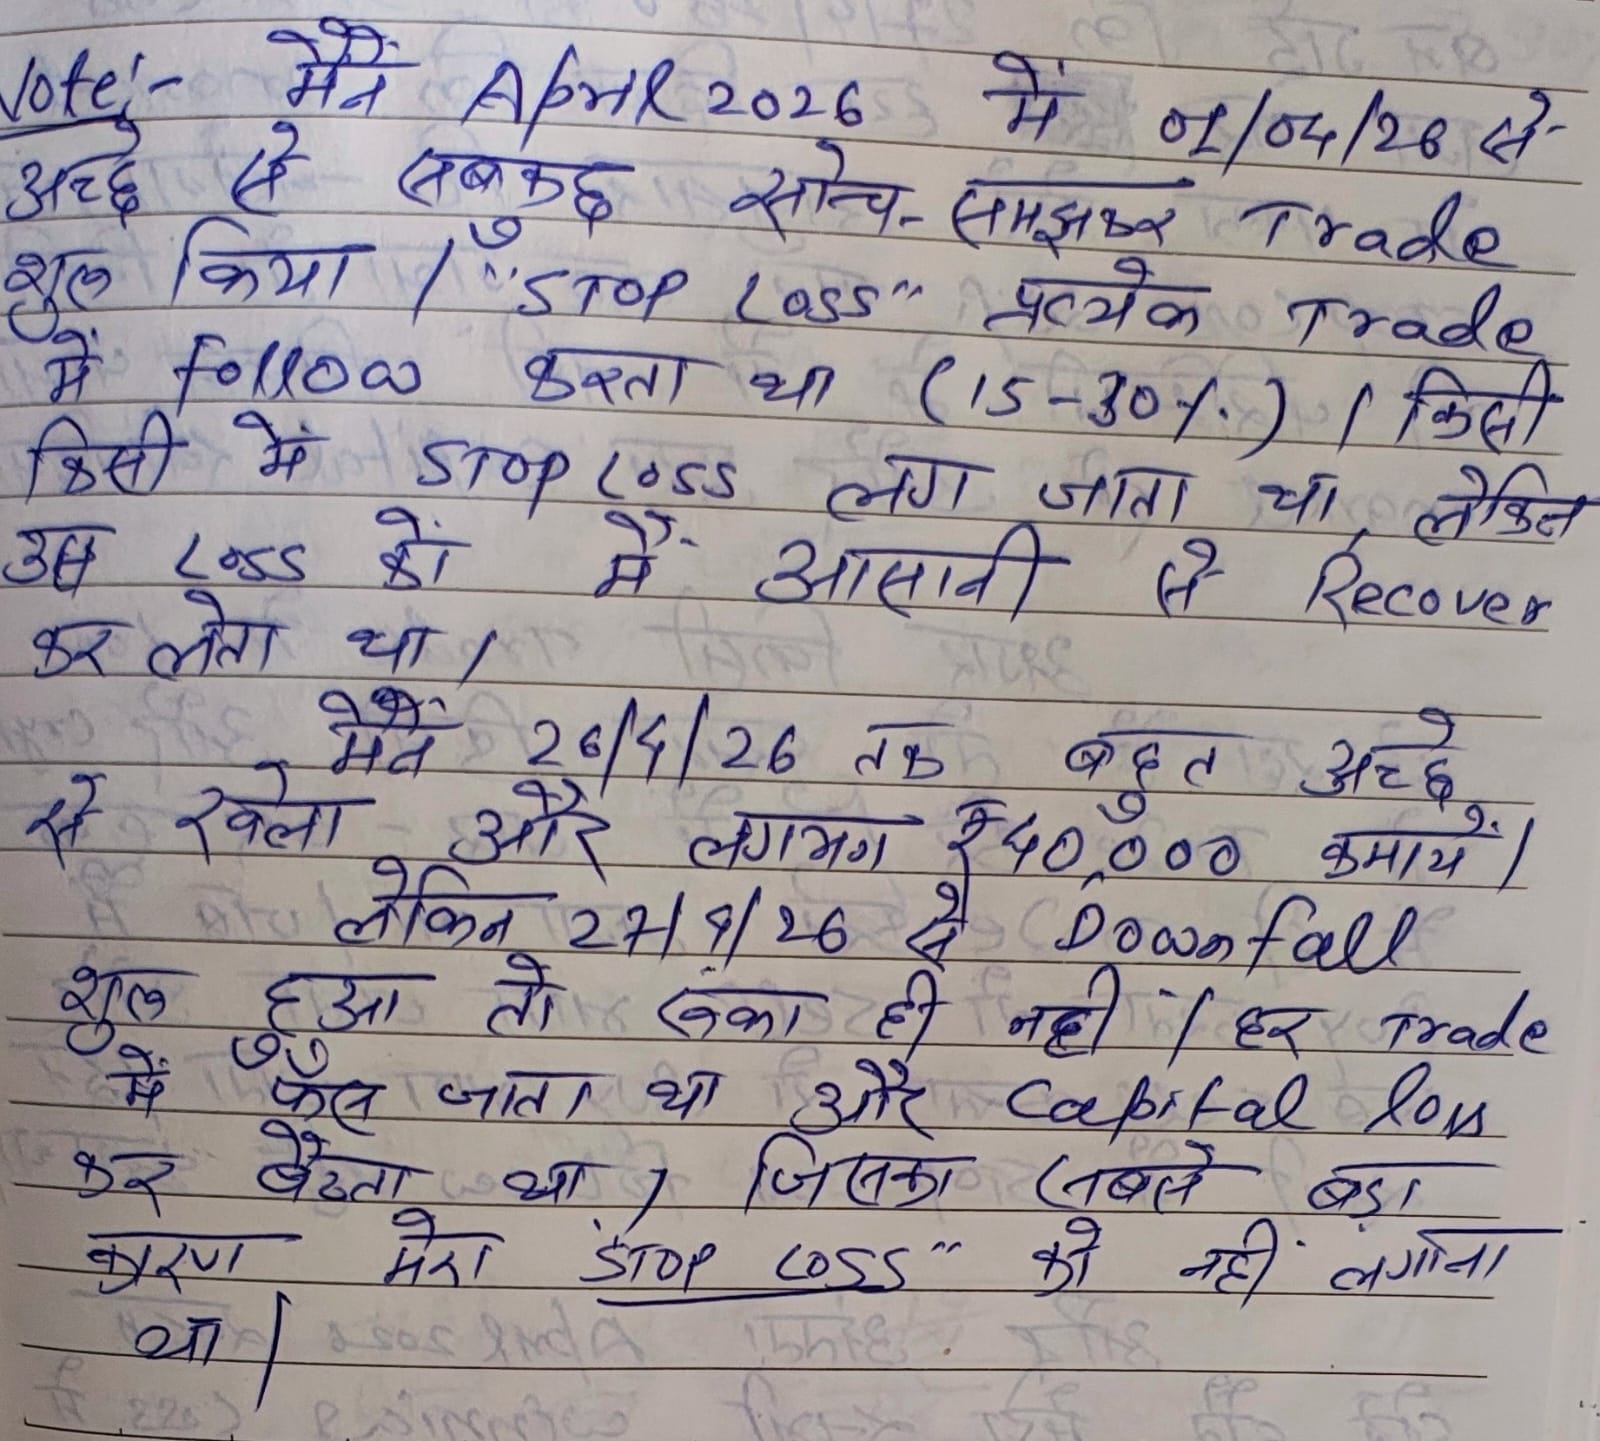 Note:- मैंने April 2026 में 01/04/26 से
अच्छे से सबकुछ सोच-समझकर Trade
शुरू किया। "STOP LOSS" प्रत्येक Trade
में follow करता था (15-30%)। किसी
किसी में STOP LOSS लग जाता था, लेकिन
उस LOSS को मैं आसानी से Recover
कर लेता था।
मैंने 26/4/26 तक बहुत अच्छे
से खेला और लगभग ₹40,000 कमाये।
लेकिन 27/4/26 से Downfall
शुरू हुआ तो रुका ही नहीं। हर Trade
में फँस जाता था और Capital loss
कर बैठता था, जिसका सबसे बड़ा
कारण मेरा "STOP LOSS" को नहीं लगाना
था।